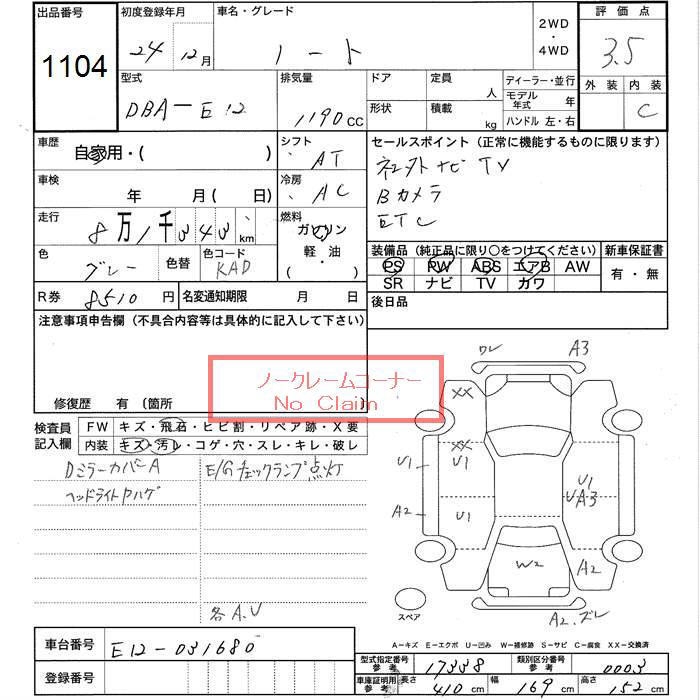 出品番号 初度登録年月 車名・グレード 2WD・4WD 評価点
1104 24 12月 ノート 3.5
型式 排気量 ドア 定員 人 ディーラー・並行 外装 内装
DBA-E12 1190CC 形状 積載 kg モデル年式 年 C
ハンドル 左・右
車歴 自家用・( ) シフト AT セールスポイント (正常に機能するものに限ります)
社外ナビ TV
車検 年 月(日) 冷房 AC Bカメラ
ETC
走行 8万1千343km 燃料 ガソリン 軽・油 ・( )
装備品 (純正品に限り○をつけてください) 新車保証書
色 グレー 色替 色コード KAD PS PW ABS エアB AW 有・無
SR ナビ TV カワ
R券 8510円 名変通知期限 月 日 後日品
注意事項申告欄 (不具合内容等は具体的に記入して下さい)
ノークレームコーナー
No Claim
修復歴 有 (箇所 )
検査員記入欄 FW キズ・飛石・ヒビ割・リペア跡・X要
内装 キズ・汚レ・コゲ・穴・スレ・キレ・破レ
DミラーカバーA E/Gチェックランプ点灯
ヘッドライトヤハゲ
各A.U
ワレ A3
XX
XX
U1 U1 U1
UA3
A2 U1
W2 A2
スペア A2.ズレ
A-キズ E-エクボ U-凹み W-補修跡 S-サビ C-腐食 XX-交換済
車台番号 E12-031680 型式指定番号 参考 17338 類別区分番号 参考 0003
登録番号 車庫証明用 参考 長さ 410cm 幅 169cm 高さ 152cm